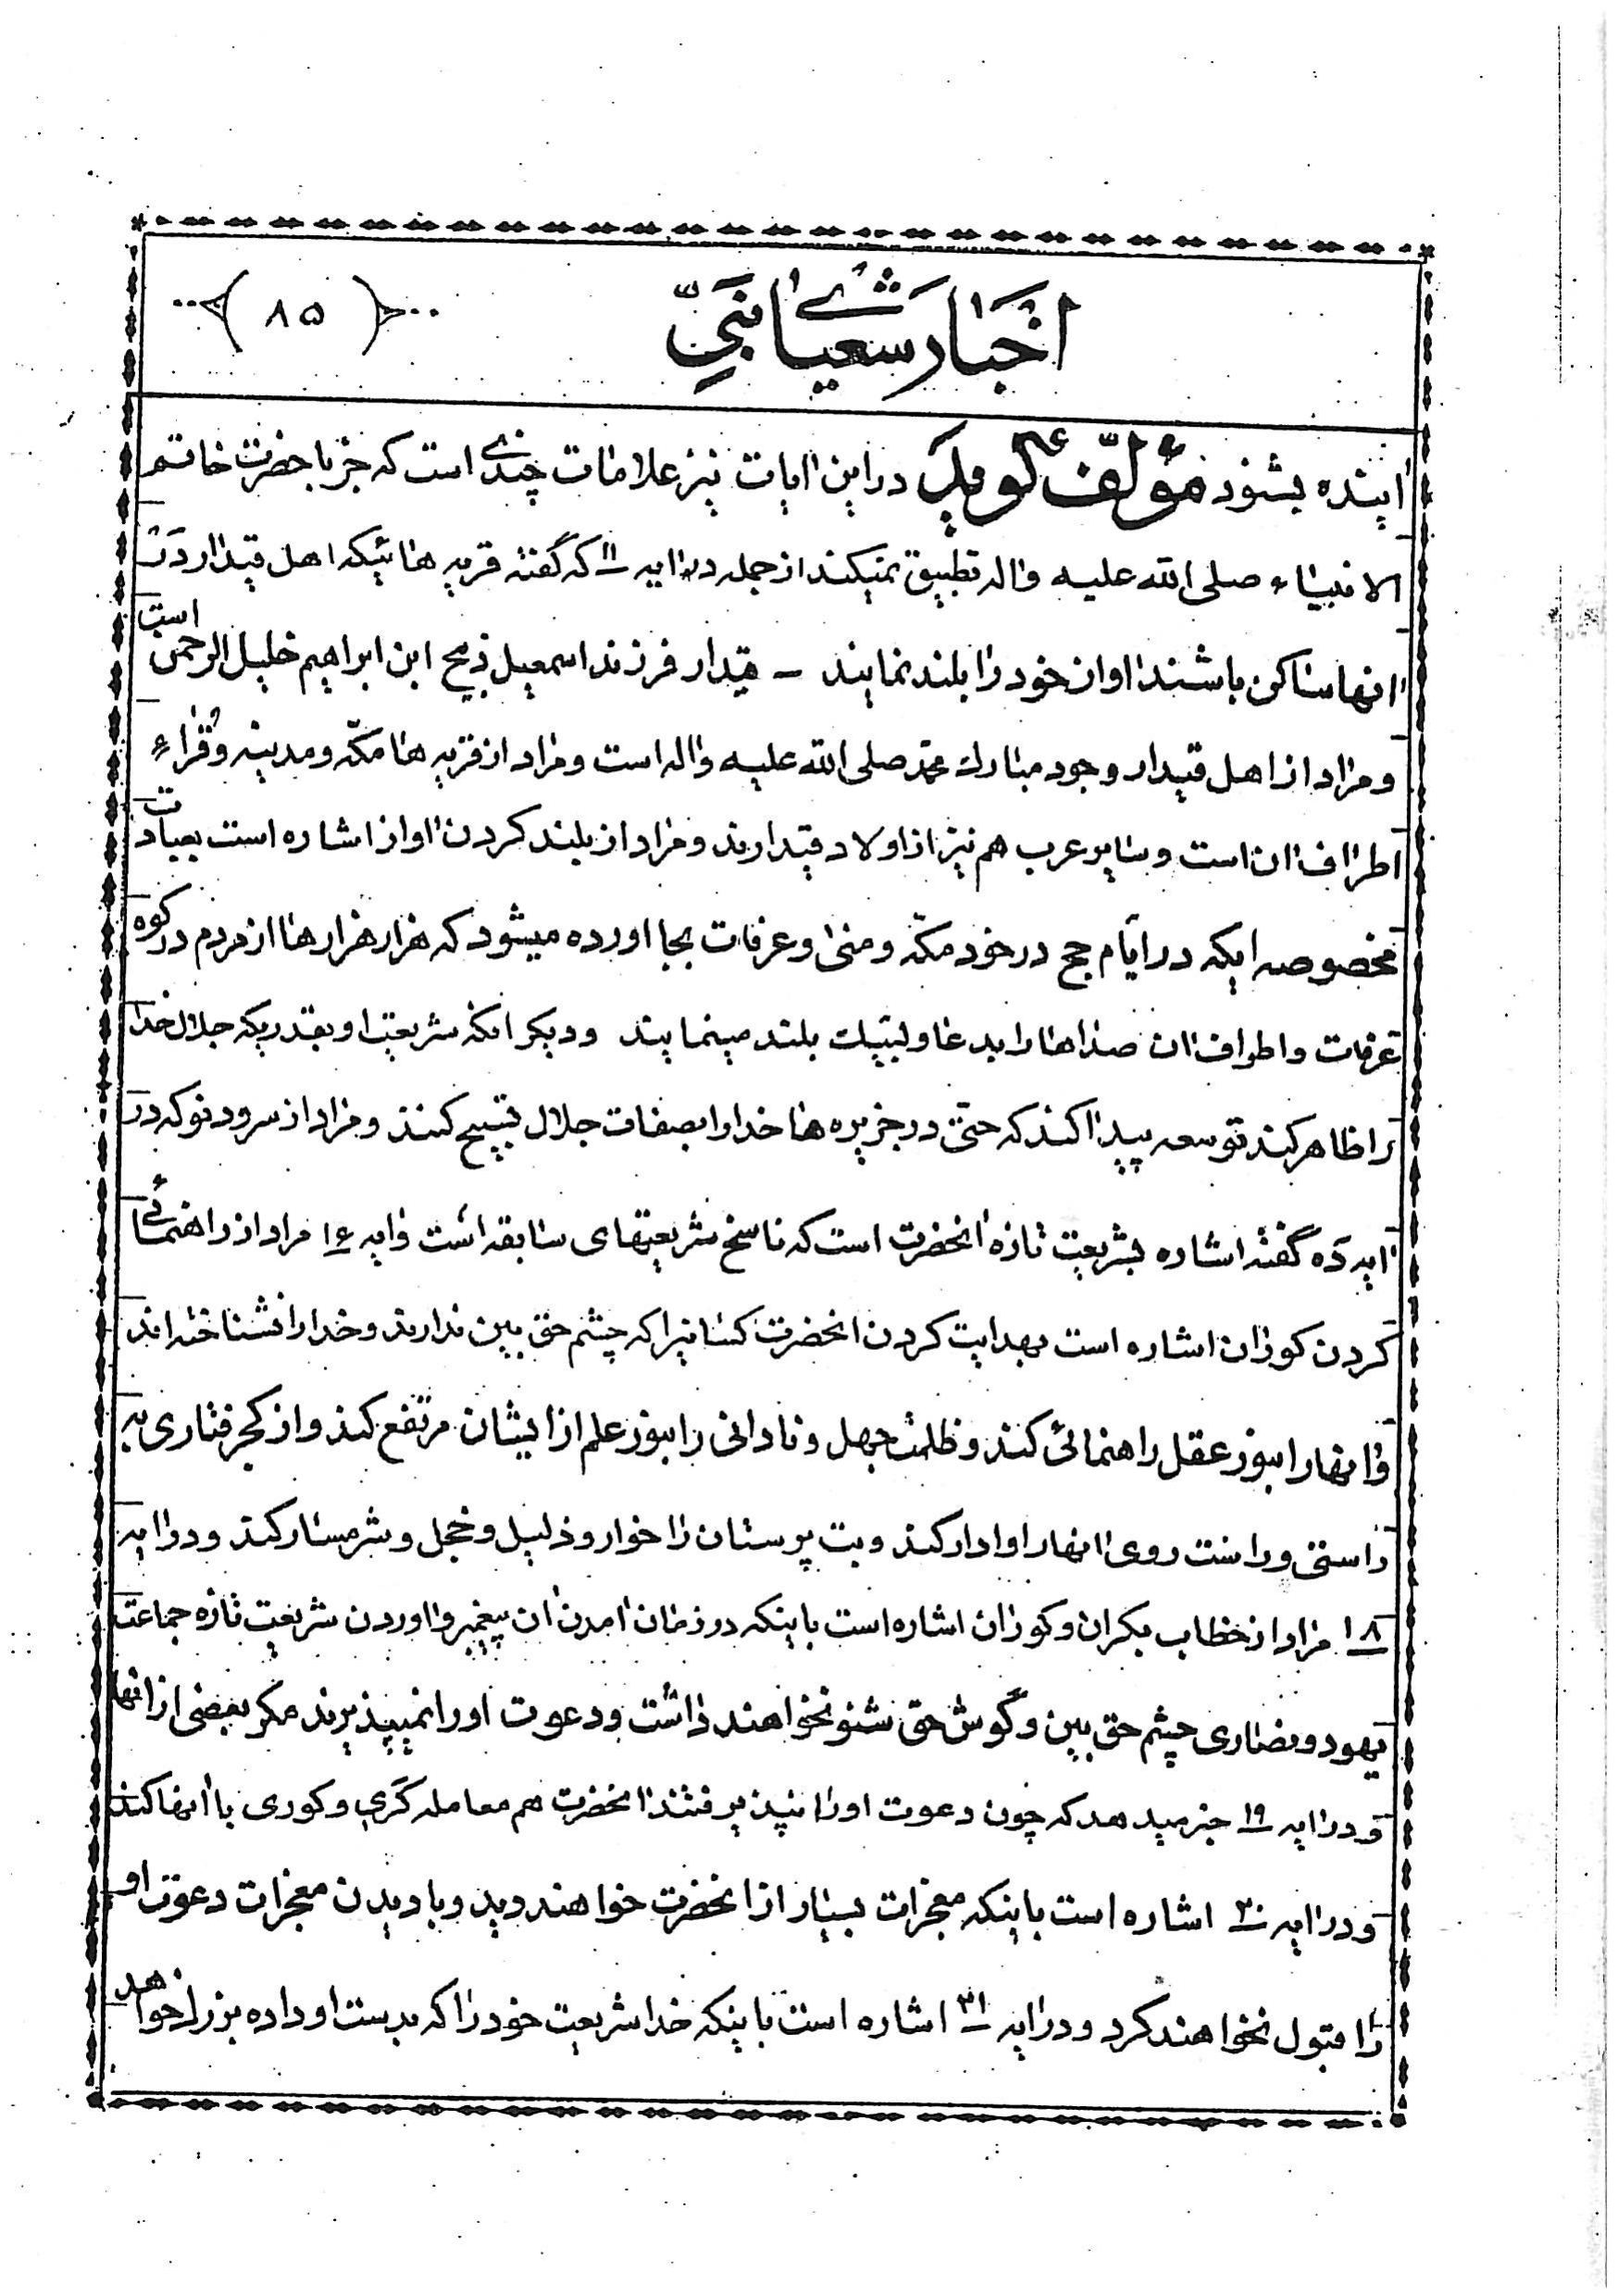 اخبار شعیای نبی
(۸۵)
آینده بشنود مؤلف گوید در این آیات نیز علامات چندی است که جز با حضرت خاتم
الانبیاء صلی الله علیه واله تطبیق نمیکند از جمله در آیه ۱۱ که گفته قریه هائیکه اهل قیدار در
آنها ساکن باشند آواز خود را بلند نمایند – قیدار فرزند اسمعیل ذبیح ابن ابراهیم خلیل الرحمن است
و مراد از اهل قیدار وجود مبارک محمد صلی الله علیه واله است و مراد از قریه ها مکّه و مدینه و قراء
اطراف آن است و سایر عرب هم نیز از اولاد قیدارند و مراد از بلند کردن آواز اشاره است بعبادت
مخصوصه ایکه در ایّام حج در خود مکّه و منی و عرفات بجا آورده میشود که هزار هزارها از مردم در کوه
عرفات و اطراف آن صداها را بدعا و لبّیک بلند مینمایند و دیگر آنکه شریعت او بقدریکه جلال خدا
را ظاهر کند توسعه پیدا کند که حتی در جزیره ها خدا را بصفات جلال تسبیح کنند و مراد از سرود نو که در
آیه ده گفته اشاره بشریعت تازه آنحضرت است که ناسخ شریعتهای سابقه است و آیه ۱۶ مراد از راهنمائی
کردن کوران اشاره است بهدایت کردن آنحضرت کسانیرا که چشم حق بین ندارند و خدا را نشناخته اند
و آنها را بنور عقل راهنمائی کند و ظلمت جهل و نادانی را بنور علم از ایشان مرتفع کند و از کجرفتاری به
راستی و راست روی آنها را وادار کند و بت پرستان را خوار و ذلیل و خجل و شرمسار کند و در آیه
۱۸ مراد از خطاب بکران و کوران اشاره است باینکه در زمان آمدن آن پیغمبر و آوردن شریعت تازه جماعت
یهود و نصاری چشم حق بین و گوش حق شنو نخواهند داشت و دعوت او را نمیپذیرند مگر بعضی از آنها
و در آیه ۱۹ خبر میدهد که چون دعوت او را نپذیرفتند آنحضرت هم معامله کری و کوری با آنها کند
و در آیه ۲۰ اشاره است باینکه معجزات بسیار از آنحضرت خواهند دید و با دیدن معجزات دعوت او
را قبول نخواهند کرد و در آیه ۲۱ اشاره است باینکه خدا شریعت خود را که بدست او داده بزرگ خواهد